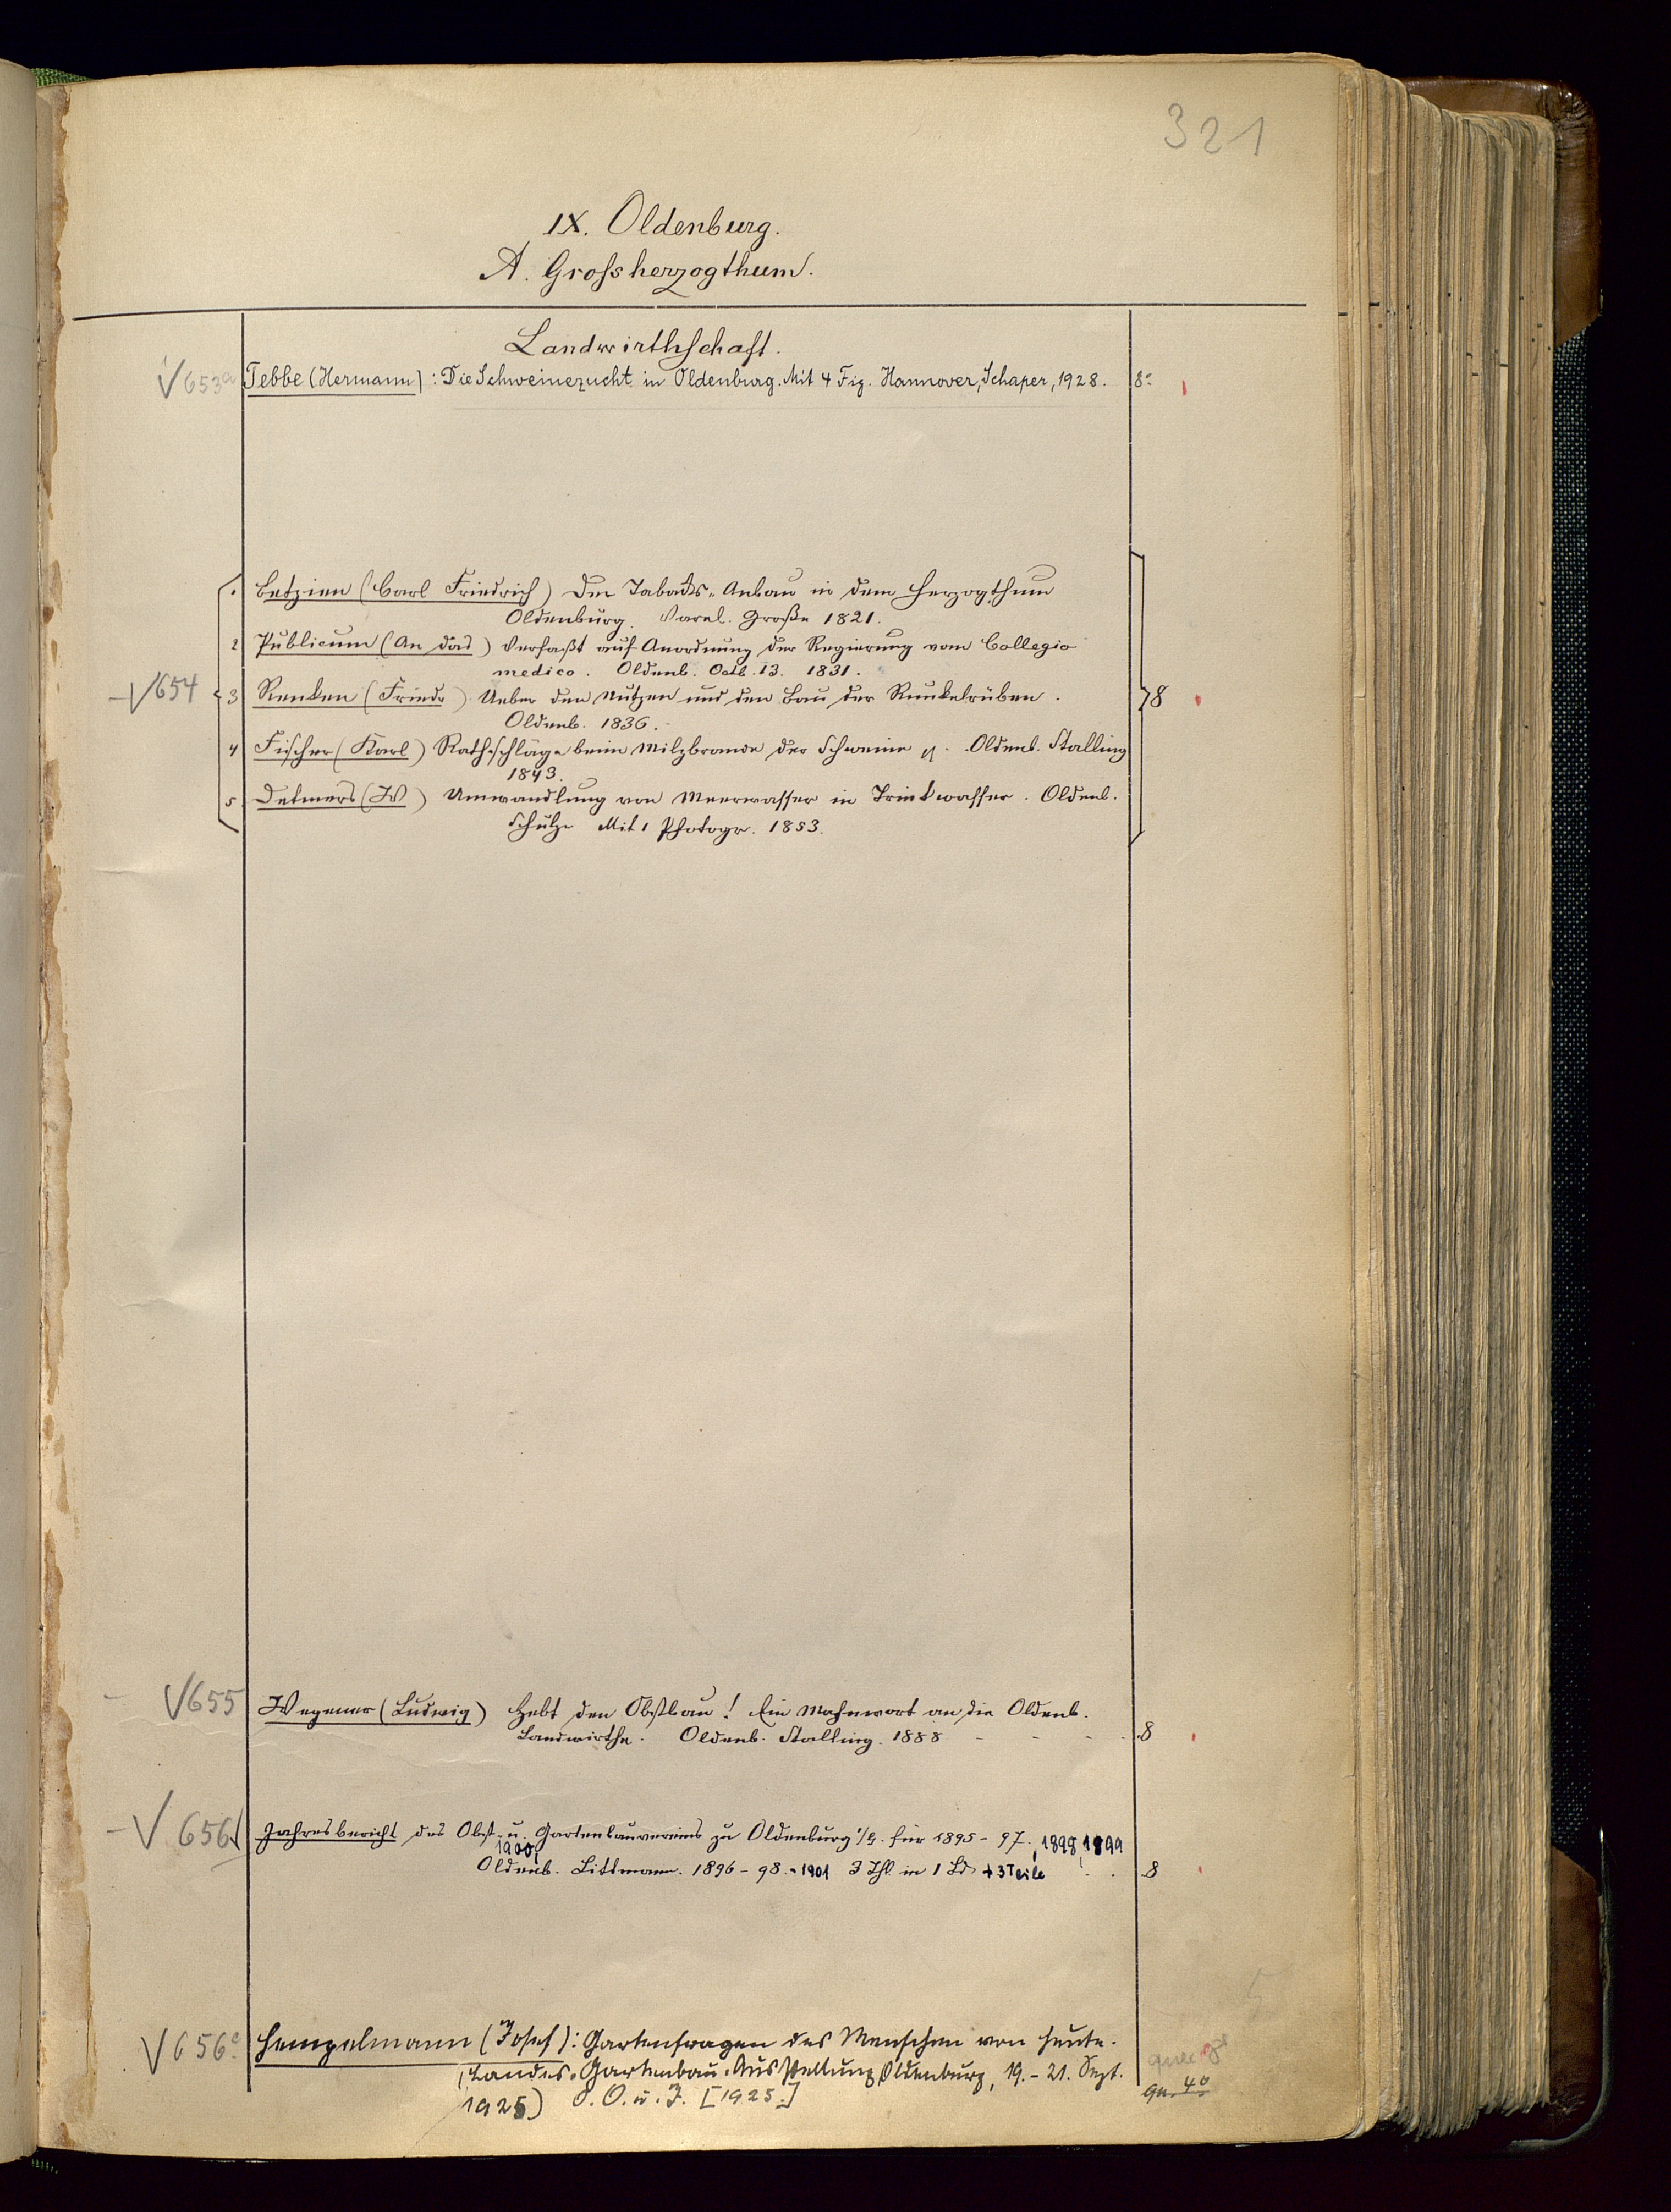 321
IX. Oldenburg.
A. Grossherzogthum.
Landwirthschaft.
V 653a Tebbe (Hermann): Die Schweinezucht in Oldenburg. Mit 4 Fig. Hannover, Schaper, 1928. 8°
1 Betzien (Carl Friedrich) Der Tabacks-Anbau in dem Herzogthum
Oldenburg. Varel. Große 1821.
2 Publicum (An das) Verfaßt auf Anordnung der Regierung vom Collegio
medico. Oldenb. Octb. 13. 1831.
V 654 3 Renken (Friedr) Ueber den Nutzen und den Bau der Runkelrüben. 8
Oldenb. 1836.
4 Fischer (Karl) Rathschläge beim Milzbrande der Schweine Oldenb. Stalling
1843.
5 Detmers (W) Umwandlung von Meerwasser in Trinkwasser. Oldenb.
Schulze Mit 1 Photogr. 1853.
V 655 Wegener (Ludwig) Hebt den Obstbau! Ein Mahnwort an die Oldenb.
Landwirthe. Oldenb. Stalling. 1888 - - - 8
V 656 Jahresbericht des Obst- u. Gartenbauvereins zu Oldenburg i/G. für 1895-97., 1898, 1899
1900
Oldenb. Littmann. 1896-98.-1901 3 Thl. in 1 Bd. + 3 Teile 8
V 656c Hempelmann (Josef): Gartenfragen des Menschen von heute.
(Landes-Gartenbau-Ausstellung Oldenburg, 19.-21. Sept.
1925) O. O. u. J. [1925.] qu. 4°